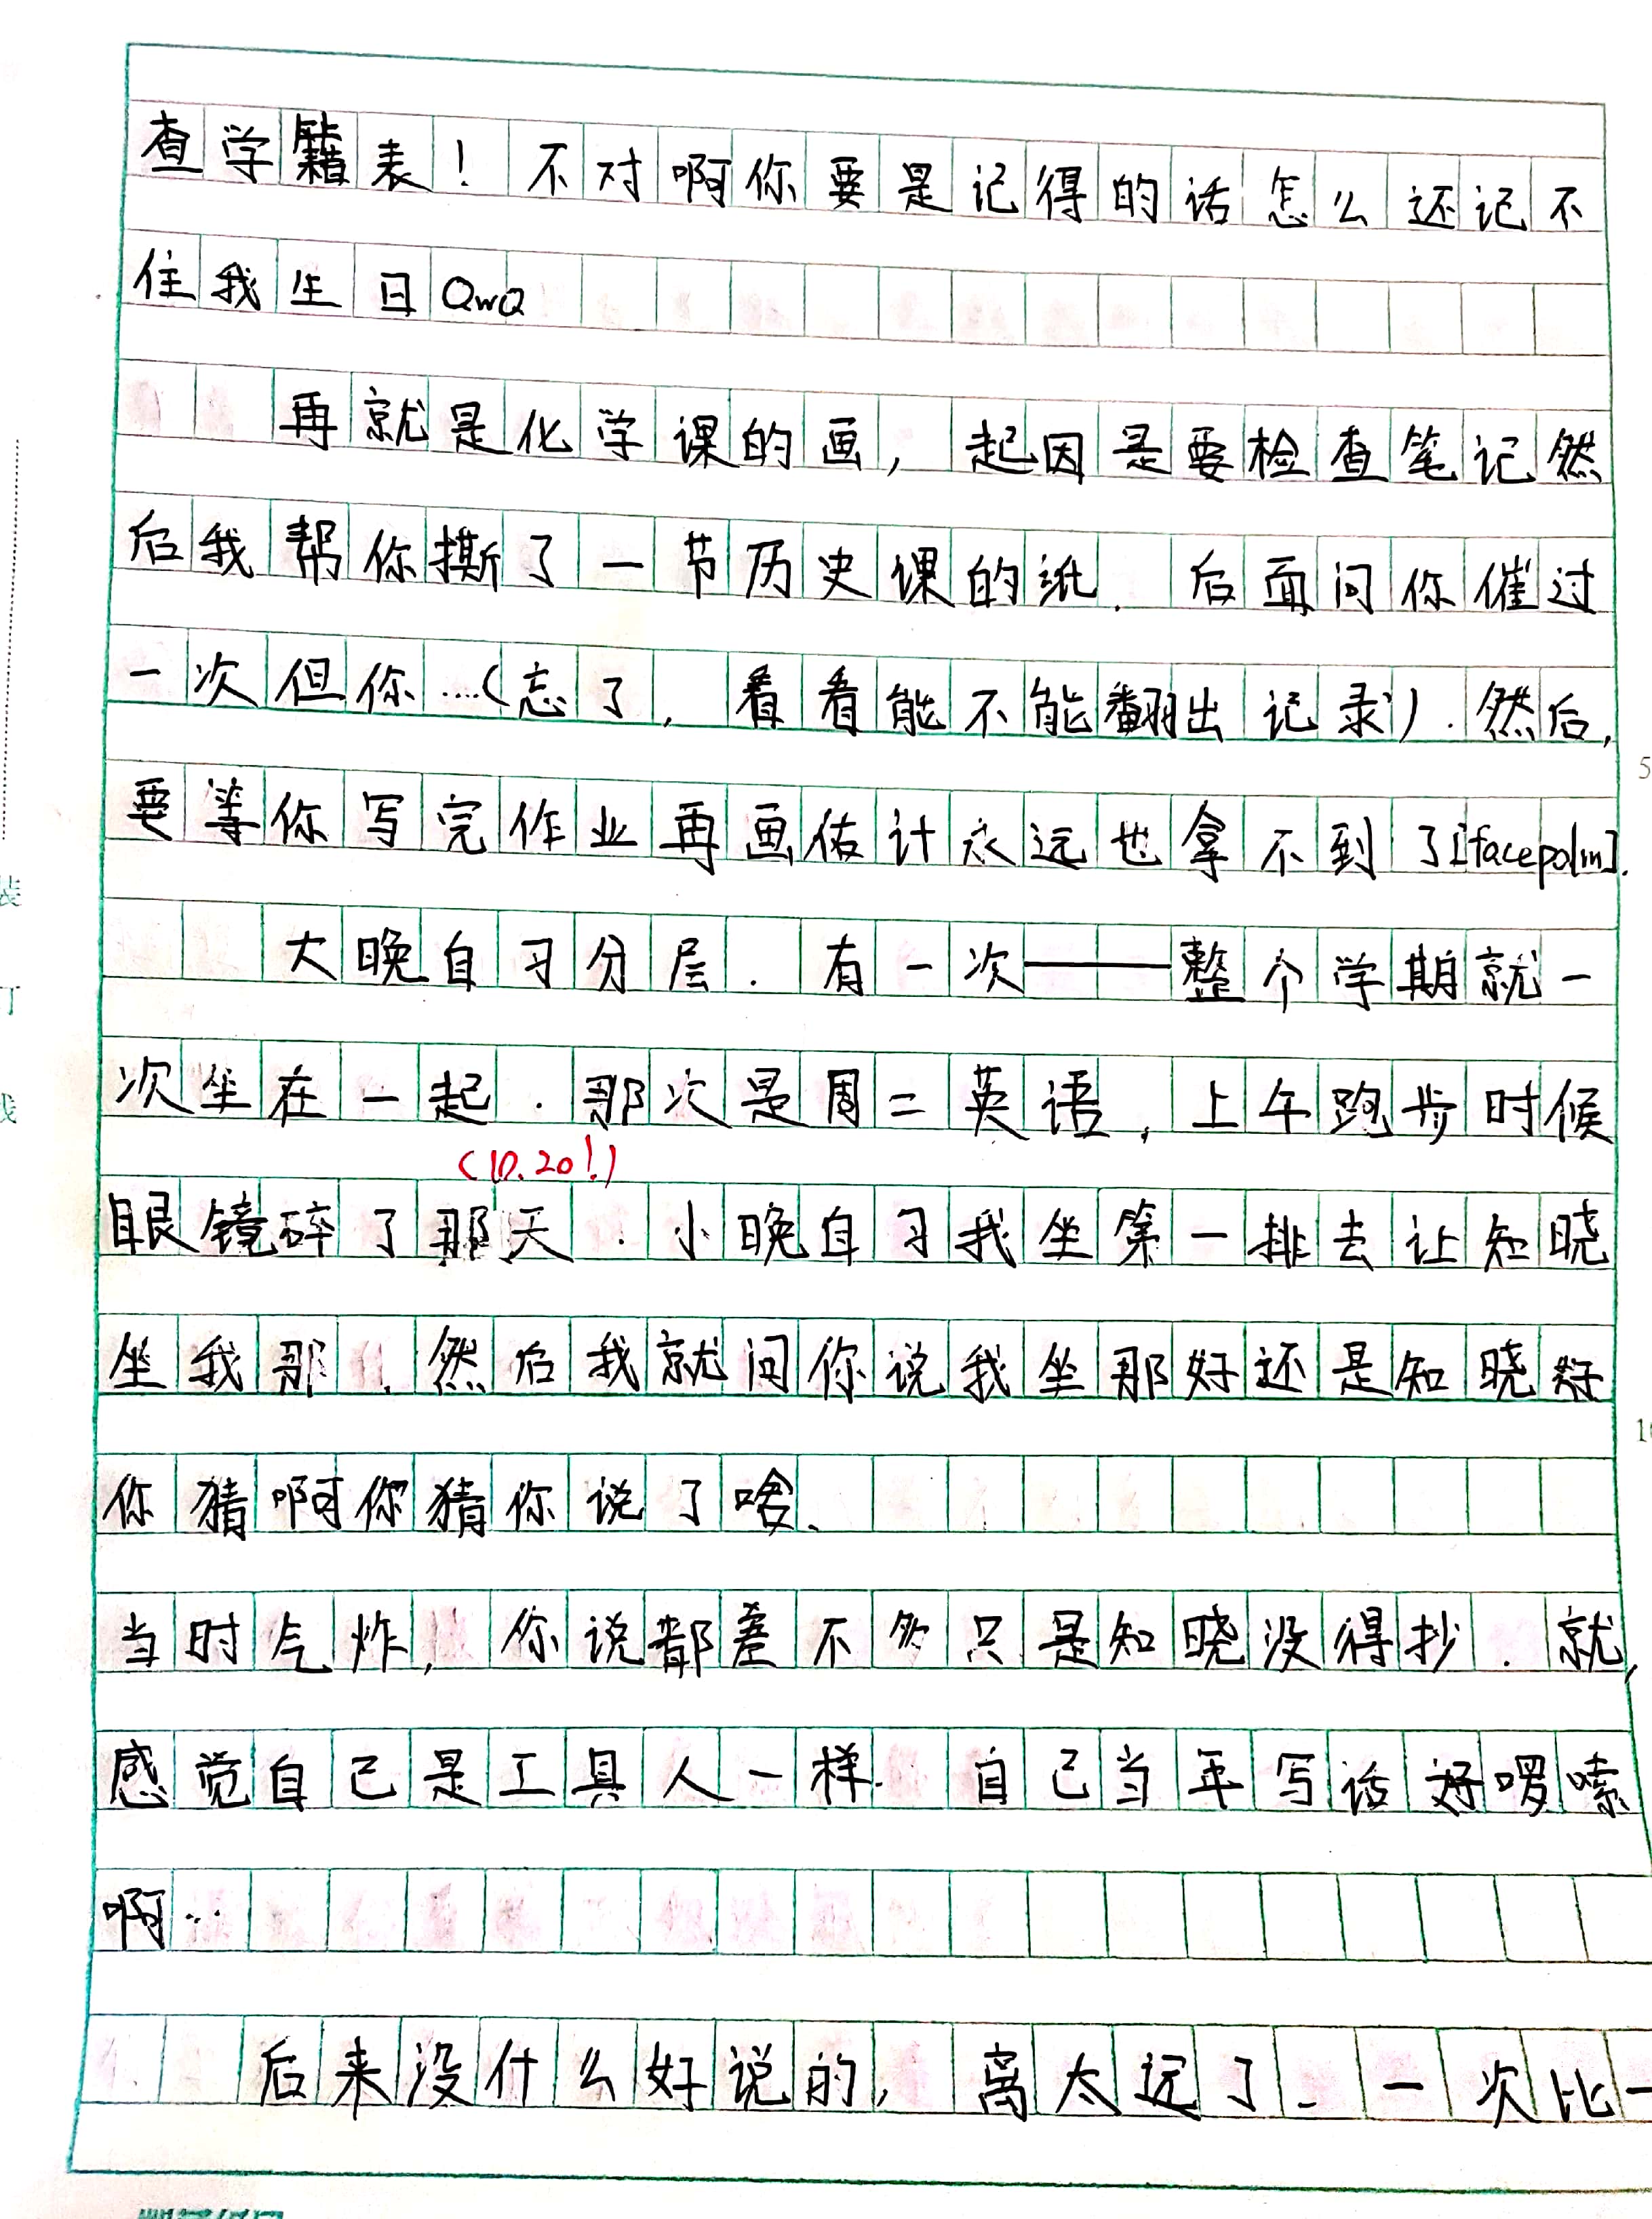 查学籍表！不对啊你要是记得的话怎么还记不
住我生日QwQ
再就是化学课的画，起因是要检查笔记然
后我帮你撕了一节历史课的纸．后面问你催过
一次但你…（忘了，看看能不能翻出记录）．然后，
5
要等你写完作业再画估计永远也拿不到了[facepalm].
装
大晚自习分层．有一次——整个学期就一
订
次坐在一起．那次是周二英语，上午跑步时候
线
(10.20!)
眼镜碎了那天．小晚自习我坐第一排去让知晓
坐我那．然后我就问你说我坐那好还是知晓好
你猜啊你猜你说了啥．
当时气炸，你说都差不多只是知晓没得抄．就，
感觉自己是工具人一样．自己当年写话好啰嗦
啊…
后来没什么好说的，离太远了．一次比一